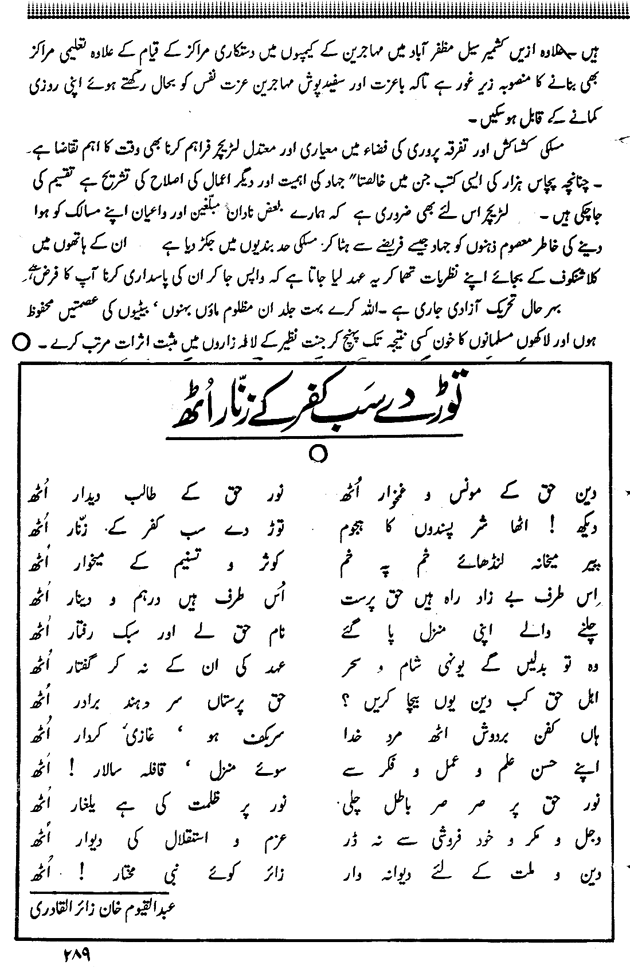 ہیں ۔ علاوہ ازیں کشمیر سیل مظفر آباد میں مہاجرین کے کیمپوں میں دستکاری مراکز کے قیام کے علاوہ تعلیمی مراکز
بھی بنانے کا منصوبہ زیر غور ہے تاکہ باعزت اور سفید پوش مہاجرین عزت نفس کو بحال رکھتے ہوئے اپنی روزی
کمانے کے قابل ہو سکیں ۔
مسلکی کشاکش اور تفرقہ پروری کی فضاء میں معیاری اور معتدل لٹریچر فراہم کرنا بھی وقت کا اہم تقاضا ہے۔
۔ چنانچہ پچاس ہزار کی ایسی کتب جن میں خالصتا" جہاد کی اہمیت اور دیگر اعمال کی اصلاح کی تشریح ہے تقسیم کی
جاچکی ہیں ۔ لٹریچر اس لئے بھی ضروری ہے کہ ہمارے بعض نادان مبلغین اور داعیان اپنے مسالک کو ہوا
دینے کی خاطر معصوم ذہنوں کو جہاد جیسے فریضے سے ہٹا کر مسلکی حد بندیوں میں جکڑ دیا ہے ان کے ہاتھوں میں
کلاشنکوف کے بجائے اپنے نظریات تھما کر یہ عہد لیا جاتا ہے کہ واپس جا کر ان کی پاسداری کرنا آپ کا فرض ہے۔
بہر حال تحریک آزادی جاری ہے ۔ اللہ کرے بہت جلد ان مظلوم ماؤں بہنوں ' بیٹیوں کی عصمتیں محفوظ
ہوں اور لاکھوں مسلمانوں کا خون کسی نتیجہ تک پہنچ کر جنت نظیر کے لالہ زاروں میں مثبت اثرات مرتب کرے ۔ O
توڑ دے سب کفر کے زنّار اُٹھ
دین حق کے مونس و غمخوار اُٹھ نور حق کے طالب دیدار اُٹھ
دیکھ ! اٹھا شر پسندوں کا ہجوم توڑ دے سب کفر کے زنّار اُٹھ
پیر میخانہ لنڈھائے خم پہ خم کوثر و تسنیم کے میخوار اُٹھ
اِس طرف بے زاد راہ ہیں حق پرست اُس طرف ہیں درہم و دینار اُٹھ
چلنے والے اپنی منزل پا گئے نام حق لے اور سبک رفتار اُٹھ
وہ تو بدلیں گے یونہی شام و سحر عہد کی ان کے نہ کر گفتار اُٹھ
اہل حق کب دین یوں بیچا کریں ؟ حق پرستاں سر دہند برادر اُٹھ
ہاں کفن بردوش اٹھ مرد خدا سربکف ہو ' غازی کردار اُٹھ
اپنے حسن علم و عمل و فکر سے سوئے منزل ' قافلہ سالار ! اُٹھ
نور حق پر صر صر باطل چلی نور پر ظلمت کی ہے یلغار اُٹھ
دجل و مکر و خود فروشی سے نہ ڈر عزم و استقلال کی دیوار اُٹھ
دین و ملت کے لئے دیوانہ وار زائر کوئے نبی مختار ! اُٹھ
عبدالقیوم خان زائر القادری
۲۸۹